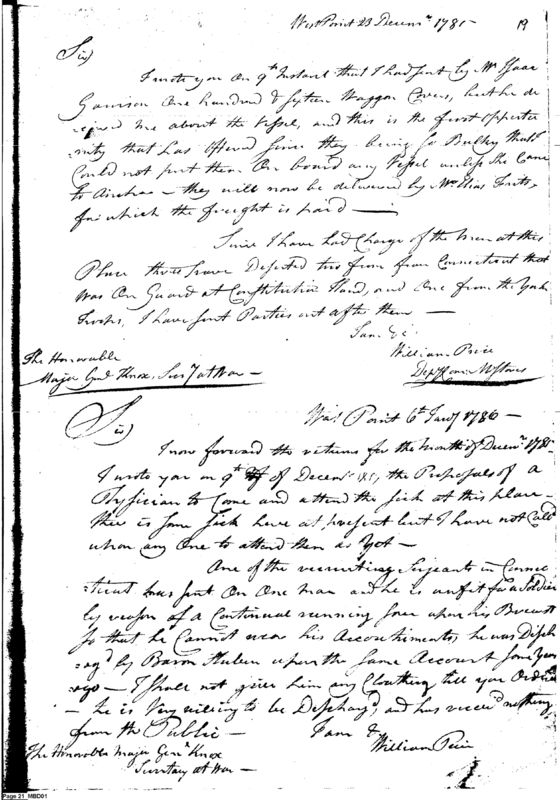 West Point 23 Decemr 1785 - 19
Sir
I wrote you on 9th Instant that I had sent by Mr Isaac
Garrison One hundred & sixteen Waggon Covers, but he de
=ceived me about the Vessel, and this is the first opportu
=nity that has offered since they being so Bulky that I
Could not put them On board any Vessel unless She Came
to Anchor - they will now be delivered by Mr Elias
for which the freight is paid —
Since I have had Charge of the Men at this
Place three have Deserted two from from Connecticut that
was On Guard at Constitution Island, and One from the York
Troops, I have sent Parties out after them —
I am &c
William Price
Depy Comr M Stores
The Honorable
Major Genl Knox, Secy at War —
West Point 6th Jany 1786 —
Sir
I now forward the returns for the Month of Decemr 1785
I wrote you on 9th of Decemr the Proposals of a
Physician to Come and attend the sick at this place
there is some sick here at present but I have not Calld
upon any One to attend them as Yet —
One of the recruiting Serjeants in Connec
=ticut has sent On One man and he is unfit for a Soldier
by reason of a Continual running Sore upon his Breast
so that he Cannot wear his Accoutrements, he was Disch
=argd by Baron Stuben upon the same Account some Years
ago — I shall not give him any Cloathing till your Orders
- he is Very willing to be Dischargd, and has receivd nothing
from the Public —
I am &
William Price
The Honorable Major Genl Knox
Secretary at War —
Page 21 MBD01